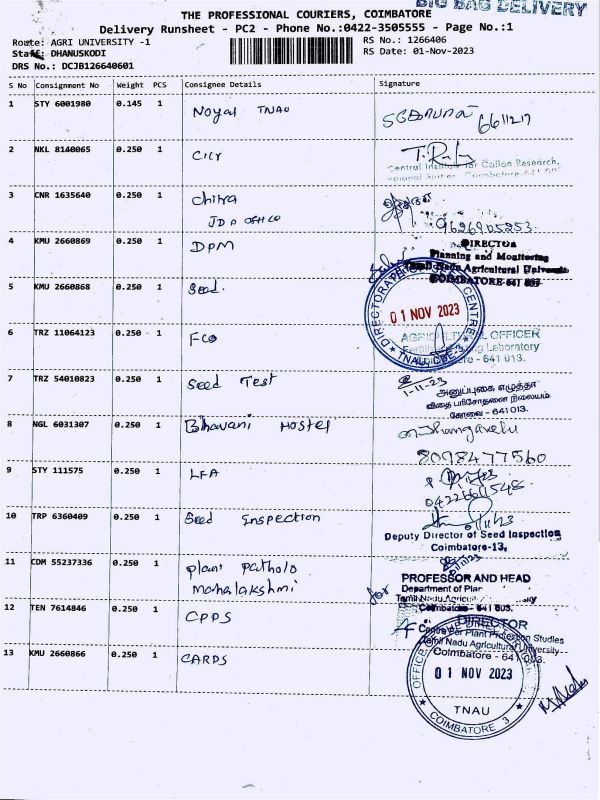 BIG BAG DELIVERY
THE PROFESSIONAL COURIERS, COIMBATORE
Delivery Runsheet - PC2 - Phone No.:0422-3505555 - Page No.:1
Route: AGRI UNIVERSITY -1
RS No.: 1266406
Staff: DHANUSKODI
RS Date: 01-Nov-2023
DRS No.: DCJB126640601
S No Consignment No Weight PCS Consignee Details Signature
1 STY 6001980 0.145 1 Noyal TNAU
6611217
2 NKL 8140065 0.250 1 CICR
Central Institute for Cotton Research,
Regional Station, Coimbatore-641 003
3 CNR 1635640 0.250 1 Chitra
JDA office
9626905253
4 KMU 2660869 0.250 1 DPM
DIRECTOR
Planning and Monitoring
Tamil Nadu Agricultural University
COIMBATORE-641 003
5 KMU 2660868 0.250 1 Seed.
DIRECTORATE SEED CENTRE
01 NOV 2023
TNAU, CBE-3
6 TRZ 11064123 0.250 1 FCO
AGRICULTURAL OFFICER
Laboratory
- 641 013.
7 TRZ 54010823 0.250 1 Seed Test
1-11-23
அனுப்புகை எழுத்தர்
விதை பரிசோதனை நிலையம்
கோவை - 641013.
8 NGL 6031307 0.250 1 Bhavani Hostel
8098477560
9 STY 111575 0.250 1 LFA
04226611548
10 TRP 6360409 0.250 1 Seed Inspection
Deputy Director of Seed Inspection
Coimbatore-13.
11 CDM 55237336 0.250 1 plant Patholo
Mahalakshmi
for
PROFESSOR AND HEAD
Department of Plant
Tamil Nadu
Coimbatore - 641 003.
12 TEN 7614846 0.250 1 CPPS
DIRECTOR
Centre For Plant Protection Studies
Tamil Nadu Agricultural University
Coimbatore - 641 003.
13 KMU 2660866 0.250 1 CARDS
OFFICE
01 NOV 2023
TNAU
COIMBATORE 3